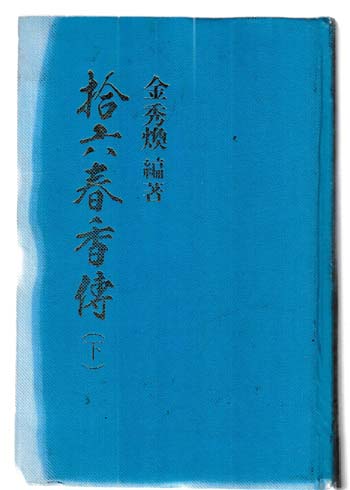 金秀煥 編著
拾六春香傳(下)